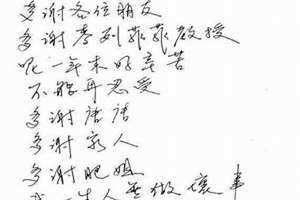 多谢各位朋友
多谢李列菲菲教授
呢一年来好辛苦
不能再忍受
多谢唐唐
多谢家人
多谢肥姐
我一生人无做壞事